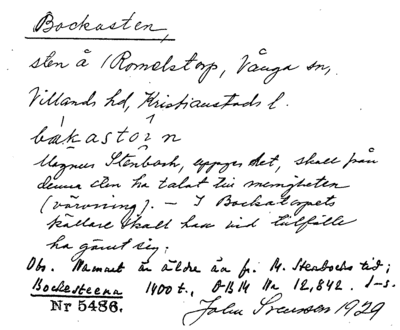 Bockasten,
sten å /Romelstorp, Vånga sn,
Villands hd, Kristianstads l.
båkastöin
Magnus Stenbock, uppges det, skall från
denna sten ha talat till menigheten
(värvning). – I Bockatorpets
källare skall han vid tillfälle
ha gömt sig.
Obs. Namnet är äldre än fr. M. Stenbocks tid;
Bockesteena 1400 t., DBM Nr 12,842. J-S.
Nr 5486. John Svensson 1929